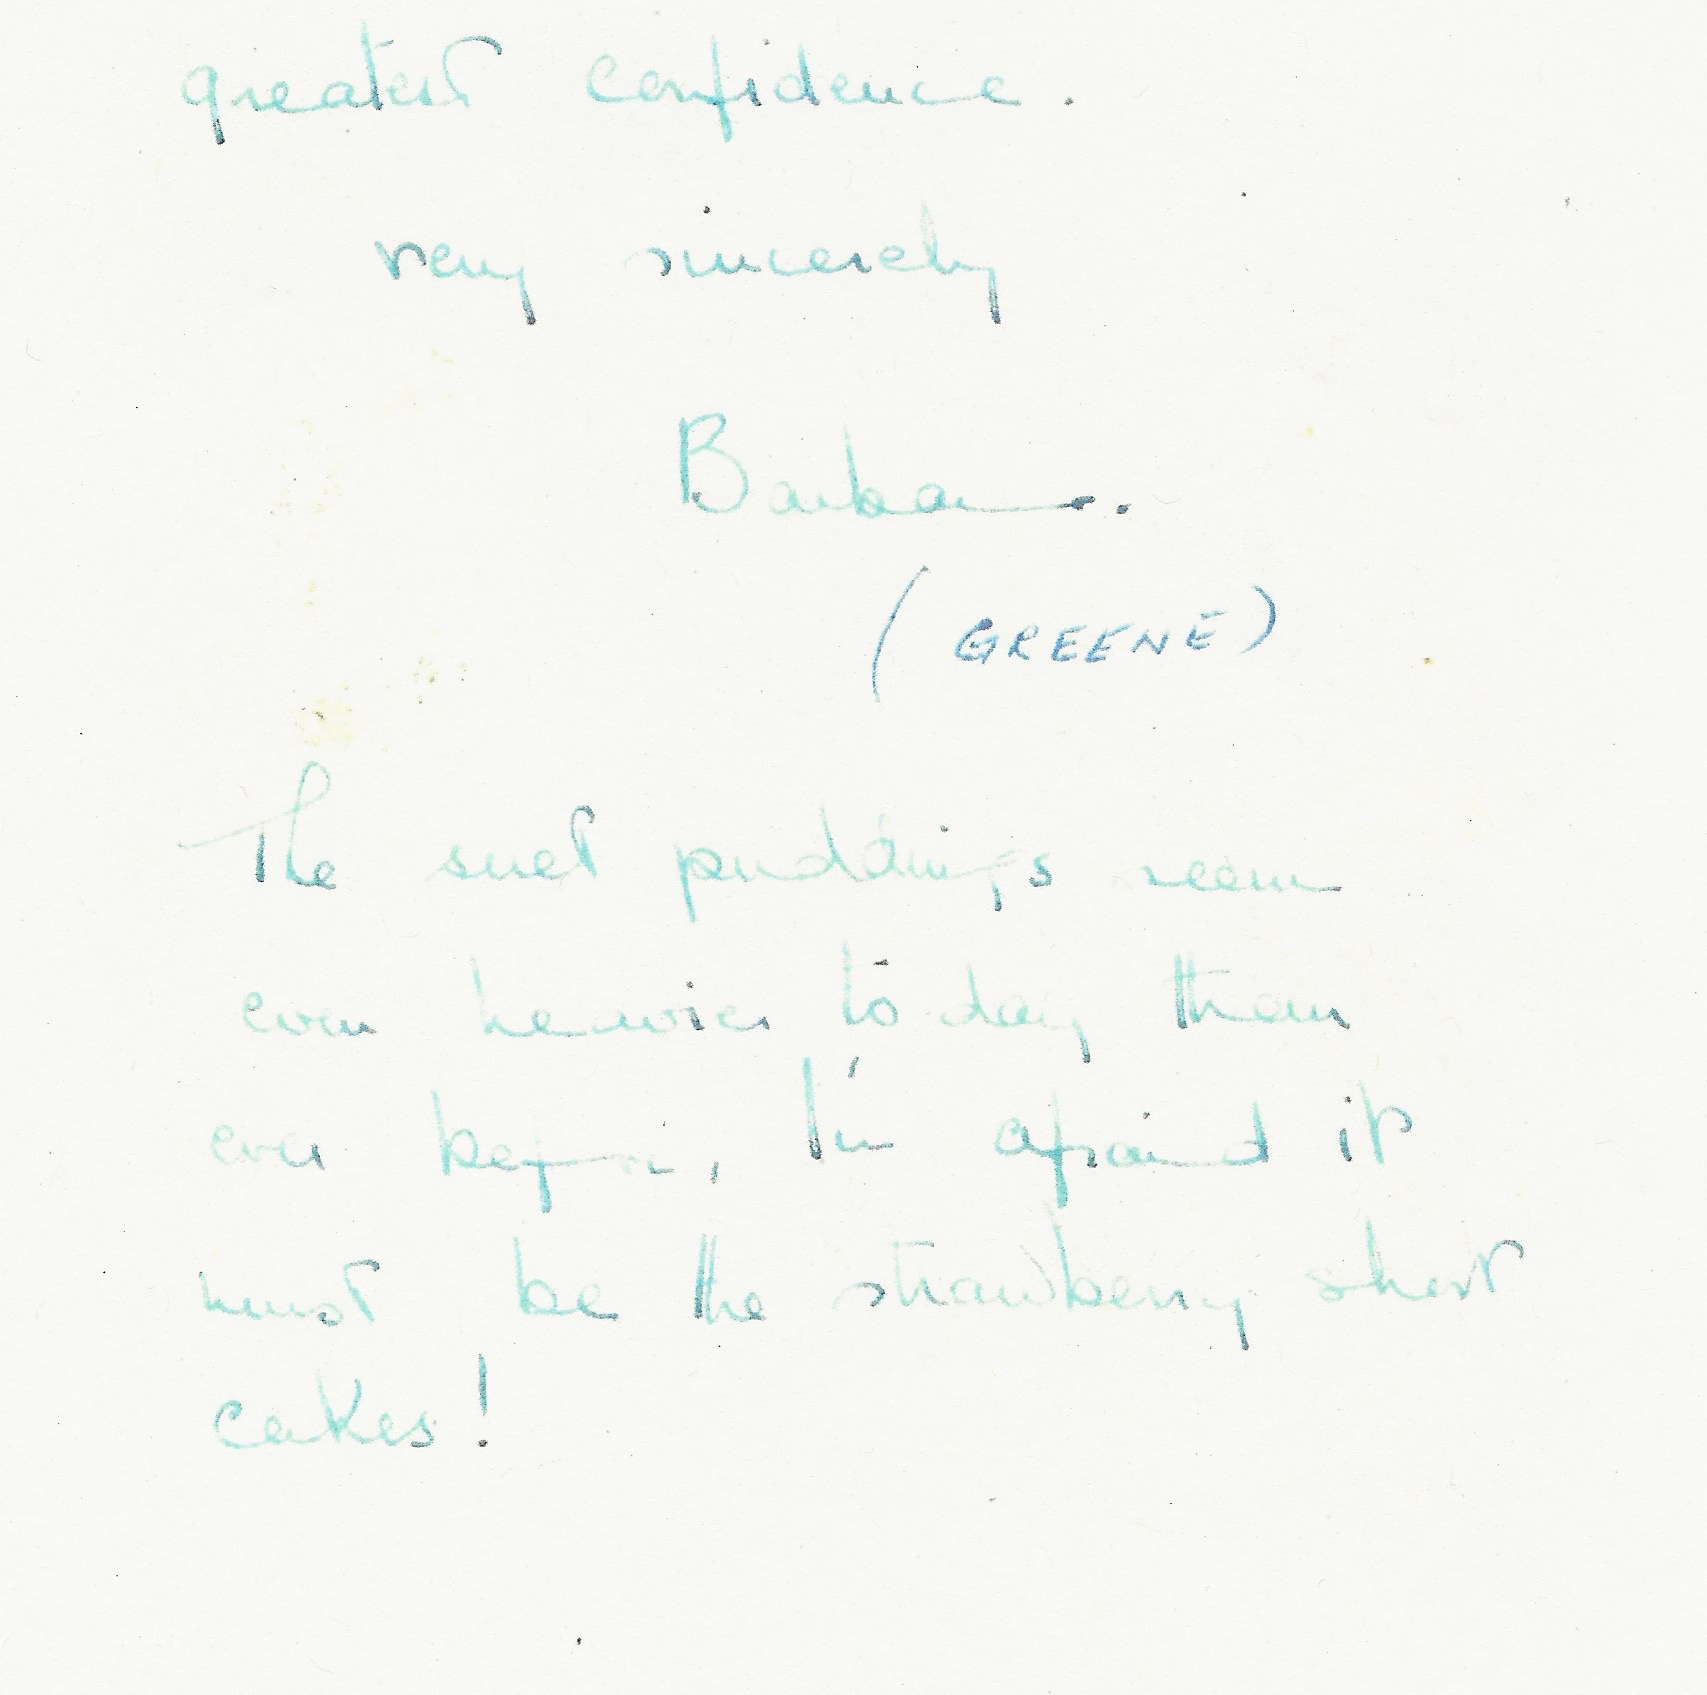 greatest confidence.
very sincerely
Barbara.
(GREENE)
The suet puddings seem
even heavier to-day than
ever before, I'm afraid it
must be the strawberry short
cakes!